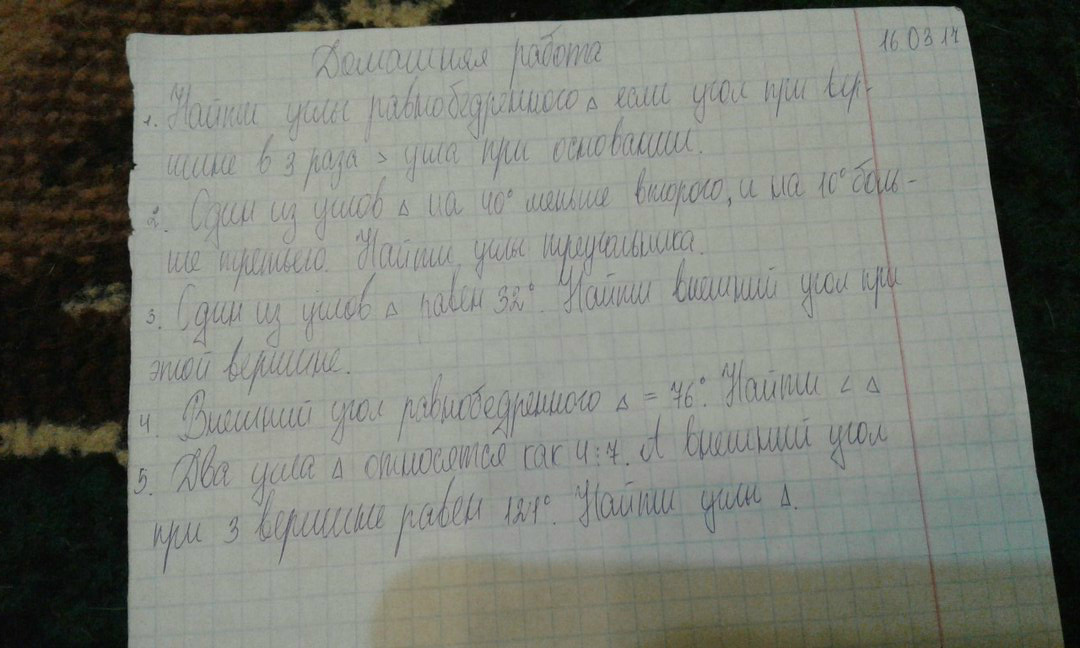 16 03 17
Домашняя работа
1. Найти углы равнобедренного △ если угол при вер-
шине в 3 раза > угла при основании.
2. Один из углов △ на 40° меньше второго, и на 10° боль-
ше третьего. Найти углы треугольника.
3. Один из углов △ равен 32°. Найти внешний угол при
этой вершине.
4. Внешний угол равнобедренного △ = 76°. Найти ∠ △
5. Два угла △ относятся как 4:7. А внешний угол
при 3 вершине равен 121°. Найти углы △.